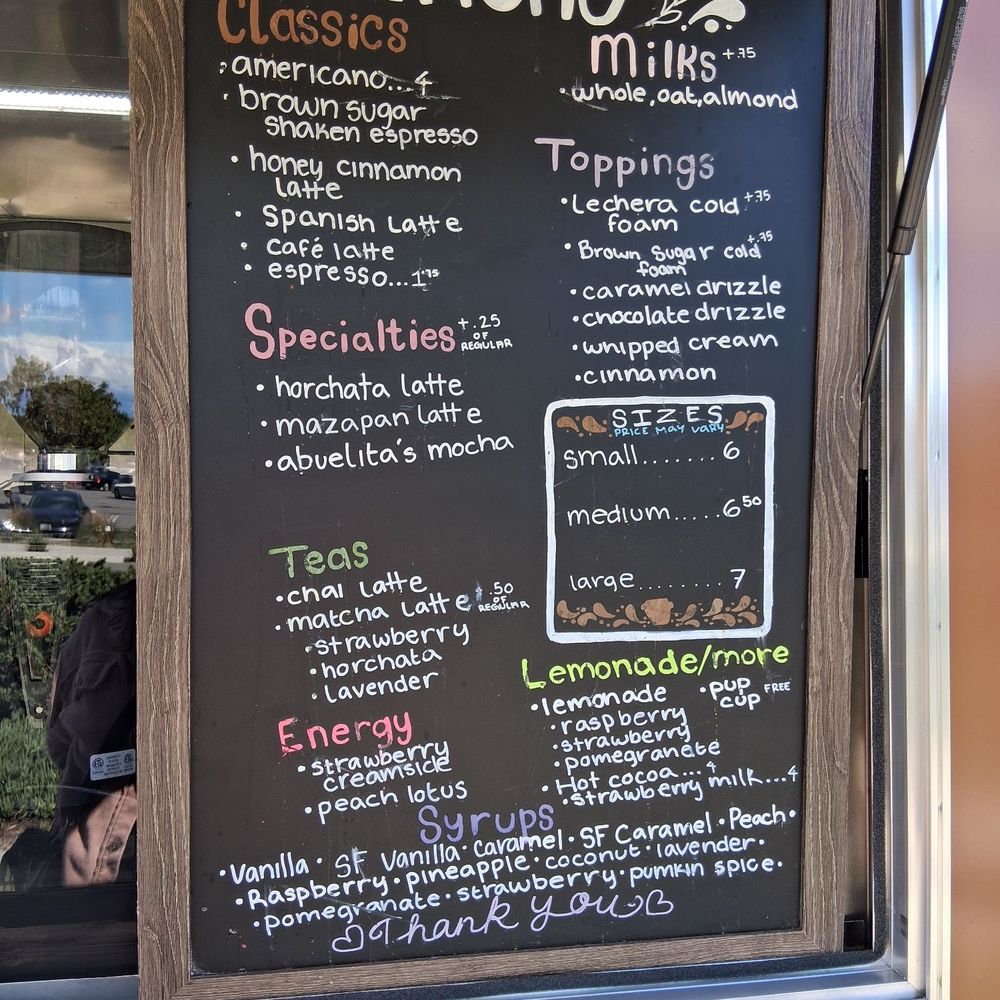 Classics
• americano...4
• brown sugar
shaken espresso
• honey cinnamon
latte
• Spanish Latte
• café latte
• espresso...1.75
Specialties +.25
OF
REGULAR
• horchata latte
• mazapan latte
• abuelita's mocha
Teas
• chai latte
• matcha latte +.50
OF
REGULAR
• strawberry
• horchata
• lavender
Energy
• strawberry
creamsicle
• peach lotus
Milks +.75
• whole, oat, almond
Toppings
• Lechera cold +.75
foam
• Brown Sugar cold +.75
foam
• caramel drizzle
• chocolate drizzle
• whipped cream
• cinnamon
SIZES
PRICE MAY VARY
small.......6
medium.....6.50
large........7
Lemonade/more
• lemonade
• raspberry
• strawberry
• pomegranate
• pup FREE
cup
• Hot cocoa...4
• strawberry milk...4
Syrups
• Vanilla • SF Vanilla • caramel • SF Caramel • Peach •
• Raspberry • pineapple • coconut • lavender •
• pomegranate • strawberry • pumkin spice •
Thank you